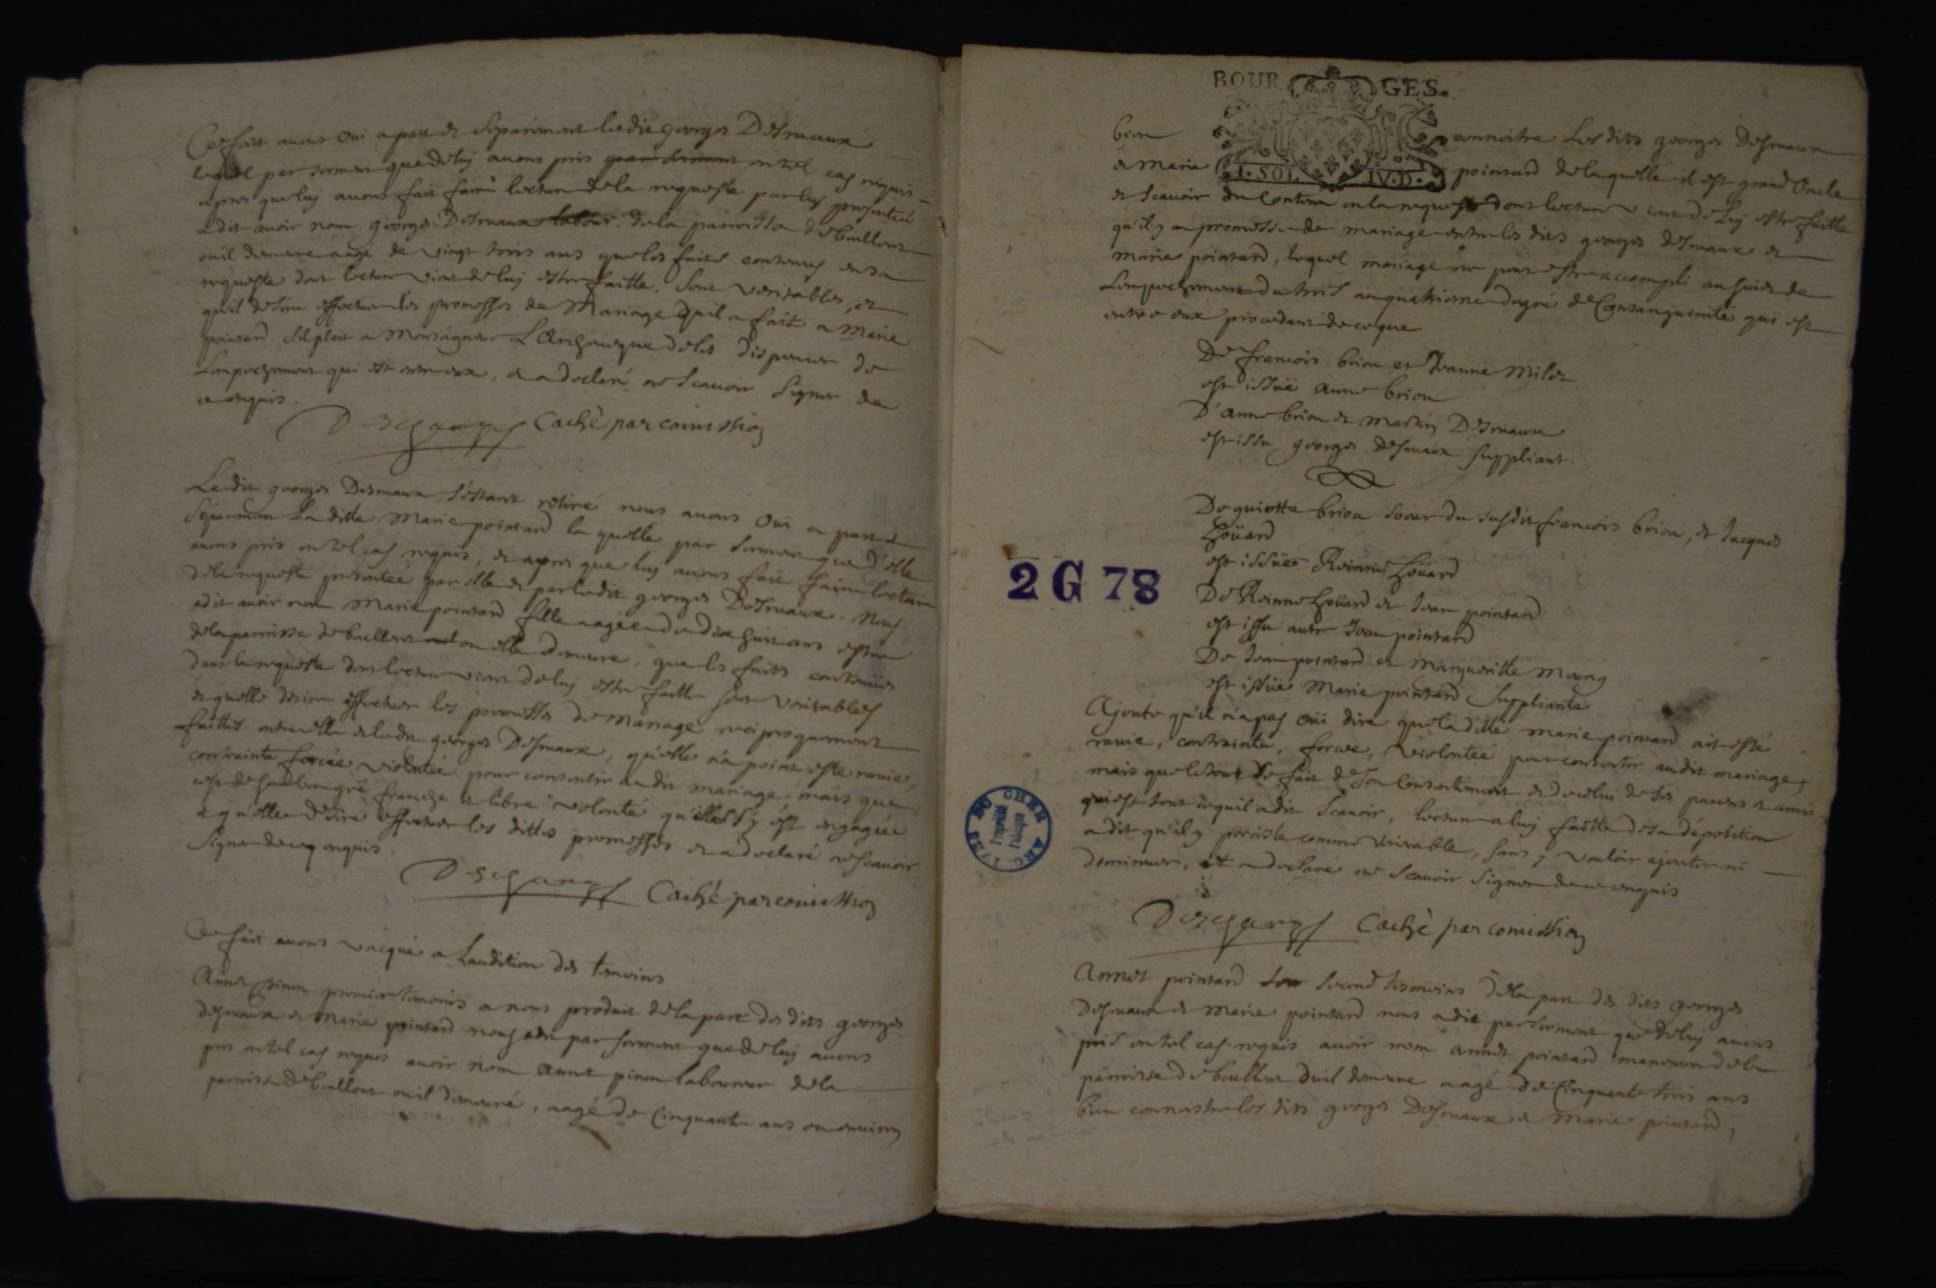 Ce fait avons oui a part et separement ledit georges Desruaux
lequel par serment que de luy avons pris en tel cas requis
apres que luy avons fait faire lecture de la requeste par luy presentée
a dit avoir nom georges Desruaux labour. de la parroisse de baillent
ou il demeure aagé de vingt trois ans que les faits contenus en sa
requeste dont lecture vient de luy estre faitte. sont veritables, et
quil desire effectuer les promesses de Mariage quil a fait a Marie
pointard sil plait a Monseigneur L'Archevesque de les dispenser de
Lempeschement qui est entre eux, et a declaré ne scavoir signer de
ce enquis.
Deschamps Caché par comission
Ledit georges Desruaux s'estant retiré nous avons oui a part et
separement Laditte Marie pointard laquelle par serment que d'elle
avons pris en tel cas requis, et apres que luy avons fait faire lecture
de la requeste presentée par elle et par ledit georges Desruaux. Nous
a dit avoir nom Marie pointard fille aagée de dix huit ans estre
de la parroisse de baillent ou elle demeure, que les faits contenües
dans la requeste dont lecture vient de luy estre faitte sont veritables
et quelle desire effectuer les promesses de Mariage reciproquement
faittes entre elle et ledit georges Desruaux, qu'elle n'a point esté ravie,
contrainte, forcée, violentée pour consentir au dit mariage, mais que
c'est de son bon gré franche et libre volonté qu'elle s'y est engagée
et qu'elle desire effectuer les dittes promesses et a declaré ne scavoir
signer de ce enquis.
Deschamps Caché par comission
Ce fait avons vacqué a Laudition des temoins
Annet pinon premier temoins a nous produit de la part des dits georges
desruaux et Marie pointard nous a dit par serment que de luy avons
pris en tel cas requis avoir nom annet pinon laboureur de la
parroisse de baillent ou il demeure, aagé de Cinquante ans ou environ
BOURGES.
I. SOL IV. D.
bien connoitre Les dits georges desruaux
et Marie pointard de laquelle il est grand Oncle
et scavoir du Contenu en la requeste dont lecture vient de luy estre faitte
qu'il y a promesse de mariage entre les dits georges desruaux et
Marie pointard, lequel mariage ne peut estre accompli au sujet de
Lempeschement du trois au quatrieme degré de Consanguinité qui est
entre eux procedant de ce que
De francois briou et Jeanne Milet
est issüe anne briou
D'anne briou et Martin Desruaux
est issu georges desruaux suppliant.
De guiotte briou soeur du susdit francois briou, et Jacques
hoüard
est issüe Reinne hoüard
De Reinne hoüard et Jean pointard
est issu autre Jean pointard
De Jean pointard et Margueritte
est issüe Marie pointard suppliante
Ajoute qu'il n'a pas oüi dire que la ditte Marie pointard ait esté
ravie, contrainte, forcée, violentée pour consentir au dit mariage,
mais que le tout se fait de son consentiment et de celui de ses parens et amis
qui est tout ce quil a dit scavoir, lecture a luy faitte de sa déposition
a dit qu'il y persiste comme veritable, sans y vouloir ajouter ni
diminuer, et a declaré ne scavoir signer de ce enquis
Deschamps Caché par comission
2 G 78
ARC. DU CHER
Propriété
Publique
Annet pointard second tesmoins de la part des dits georges
desruaux et Marie pointard nous a dit par serment que de luy avons
pris en tel cas requis avoir nom annet pointard manoeuvre de la
parroisse de baillent ou il demeure aagé de Cinquante trois ans
bien connoistre les dits georges Desruaux et Marie pointard,